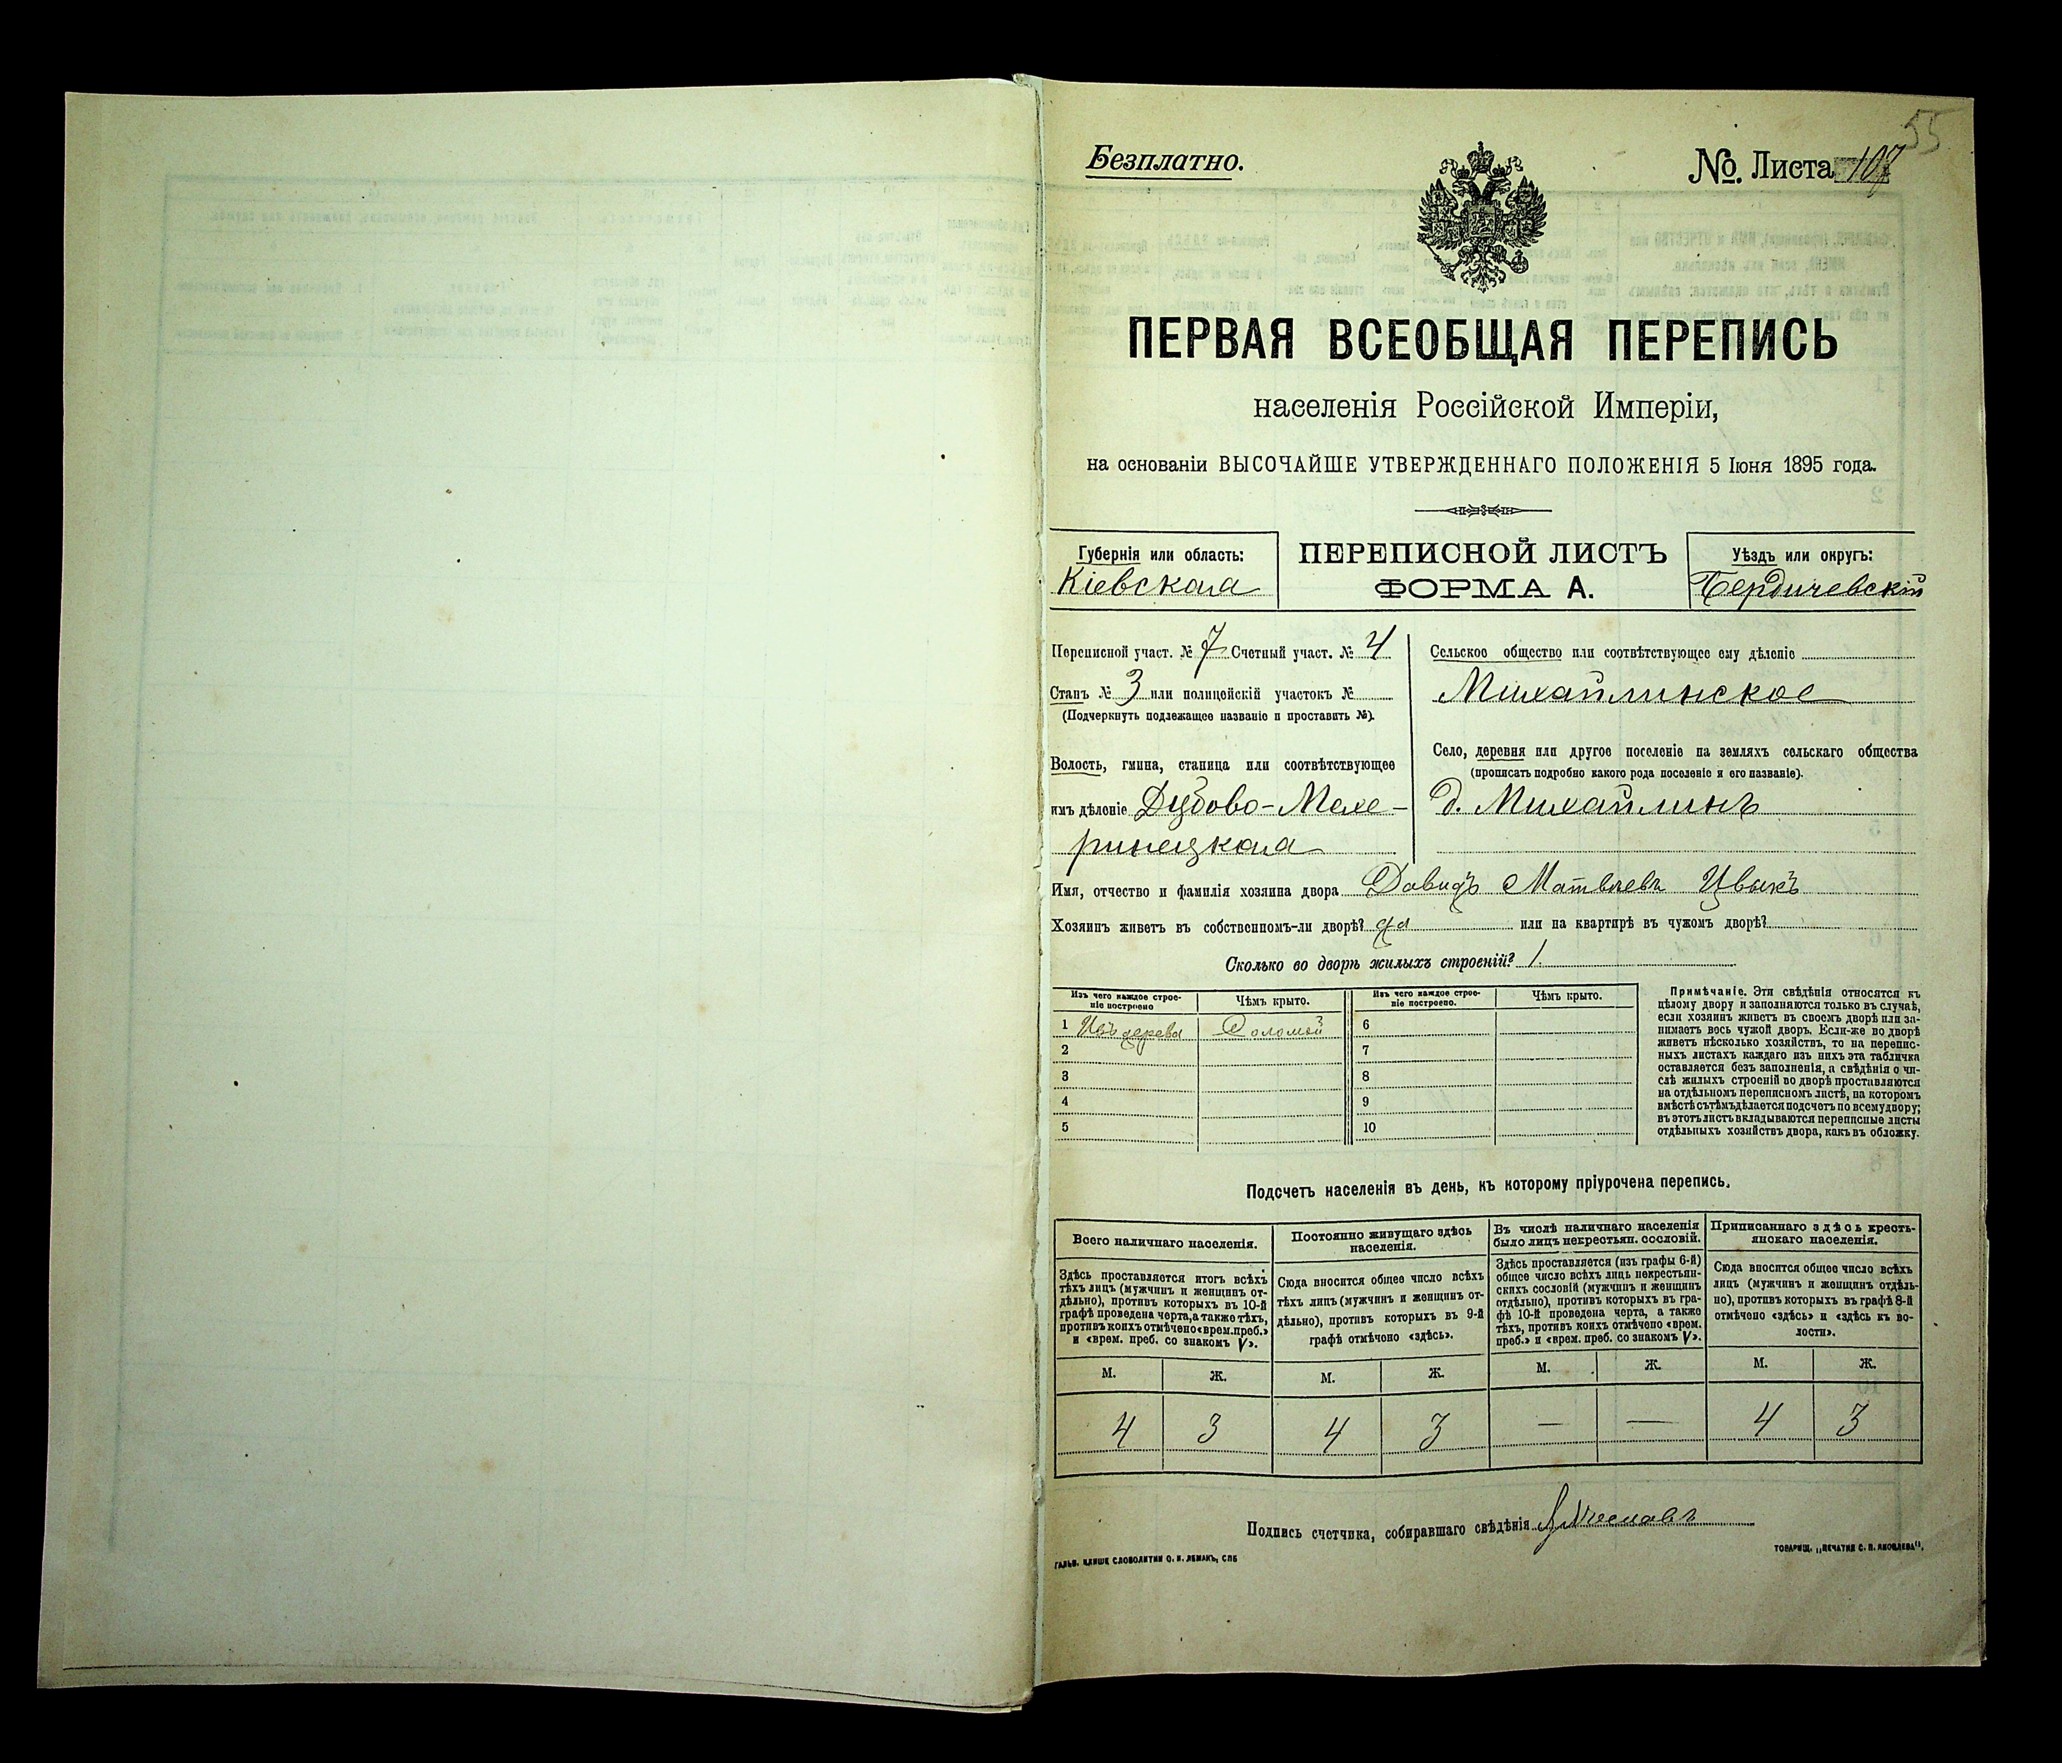 55
Безплатно.
№. Листа 107
ПЕРВАЯ ВСЕОБЩАЯ ПЕРЕПИСЬ
населенія Россійской Имперіи,
на основаніи ВЫСОЧАЙШЕ УТВЕРЖДЕННАГО ПОЛОЖЕНІЯ 5 Іюня 1895 года.
Губернія или область:
Кіевская
ПЕРЕПИСНОЙ ЛИСТЪ
ФОРМА А.
Уѣздъ или округъ:
Бердичевскій
Переписной участ. № 7 Счетный участ. № 4
Станъ № 3 или полицейскій участокъ №
(Подчеркнуть подлежащее названіе и проставить №).
Волость, гмина, станица или соотвѣтствующее
имъ дѣленіе Дубово-Мехе-
ринецкая
Сельское общество или соотвѣтствующее ему дѣленіе
Михайлинское
Село, деревня или другое поселеніе на земляхъ сельскаго общества
(прописать подробно какого рода поселеніе и его названіе).
д. Михайлинъ
Имя, отчество и фамилія хозяина двора Давидъ Матвѣевъ Цвыкъ
Хозяинъ живетъ въ собственномъ-ли дворѣ? да или на квартирѣ въ чужомъ дворѣ?
Сколько во дворѣ жилыхъ строеній? 1.
Изъ чего каждое строе-
ніе построено
Чѣмъ крыто.
Изъ чего каждое строе-
ніе построено.
Чѣмъ крыто.
1 Изъ дерева Соломой 6
2 7
3 8
4 9
5 10
Примѣчаніе. Эти свѣдѣнія относятся къ
цѣлому двору и заполняются только въ случаѣ,
если хозяинъ живетъ въ своемъ дворѣ или за-
нимаетъ весь чужой дворъ. Если-же во дворѣ
живетъ нѣсколько хозяйствъ, то на перепис-
ныхъ листахъ каждаго изъ нихъ эта табличка
оставляется безъ заполненія, а свѣдѣнія о чи-
слѣ жилыхъ строеній во дворѣ проставляются
на отдѣльномъ переписномъ листѣ, на которомъ
вмѣстѣ съ тѣмъ дѣлается подсчетъ по всему двору;
въ этотъ листъ вкладываются переписные листы
отдѣльныхъ хозяйствъ двора, какъ въ обложку.
Подсчетъ населенія въ день, къ которому пріурочена перепись.
Всего наличнаго населенія.
Здѣсь проставляется итогъ всѣхъ
тѣхъ лицъ (мужчинъ и женщинъ от-
дѣльно), противъ которыхъ въ 10-й
графѣ проведена черта, а также тѣхъ,
противъ коихъ отмѣчено «врем. преб.»
и «врем. преб. со знакомъ V».
Постоянно живущаго здѣсь
населенія.
Сюда вносится общее число всѣхъ
тѣхъ лицъ (мужчинъ и женщинъ от-
дѣльно), противъ которыхъ въ 9-й
графѣ отмѣчено «здѣсь».
Въ числѣ наличнаго населенія
было лицъ некрестьян. сословій.
Здѣсь проставляется (изъ графы 6-й)
общее число всѣхъ лицъ некрестьян-
скихъ сословій (мужчинъ и женщинъ
отдѣльно), противъ которыхъ въ гра-
фѣ 10-й проведена черта, а также
тѣхъ, противъ коихъ отмѣчено «врем.
преб.» и «врем. преб. со знакомъ V».
Приписаннаго здѣсь кресть-
янскаго населенія.
Сюда вносится общее число всѣхъ
лицъ (мужчинъ и женщинъ отдѣль-
но), противъ которыхъ въ графѣ 8-й
отмѣчено «здѣсь» и «здѣсь къ во-
лости».
М. Ж. М. Ж. М. Ж. М. Ж.
4 3 4 3 — — 4 3
Подпись счетчика, собиравшаго свѣдѣнія
ГАЛЬВ. КЛИШЕ СЛОВОЛИТНИ О. И. ЛЕМАНЪ, СПБ
ТОВАРИЩ. „ПЕЧАТНЯ С. П. ЯКОВЛЕВА“,